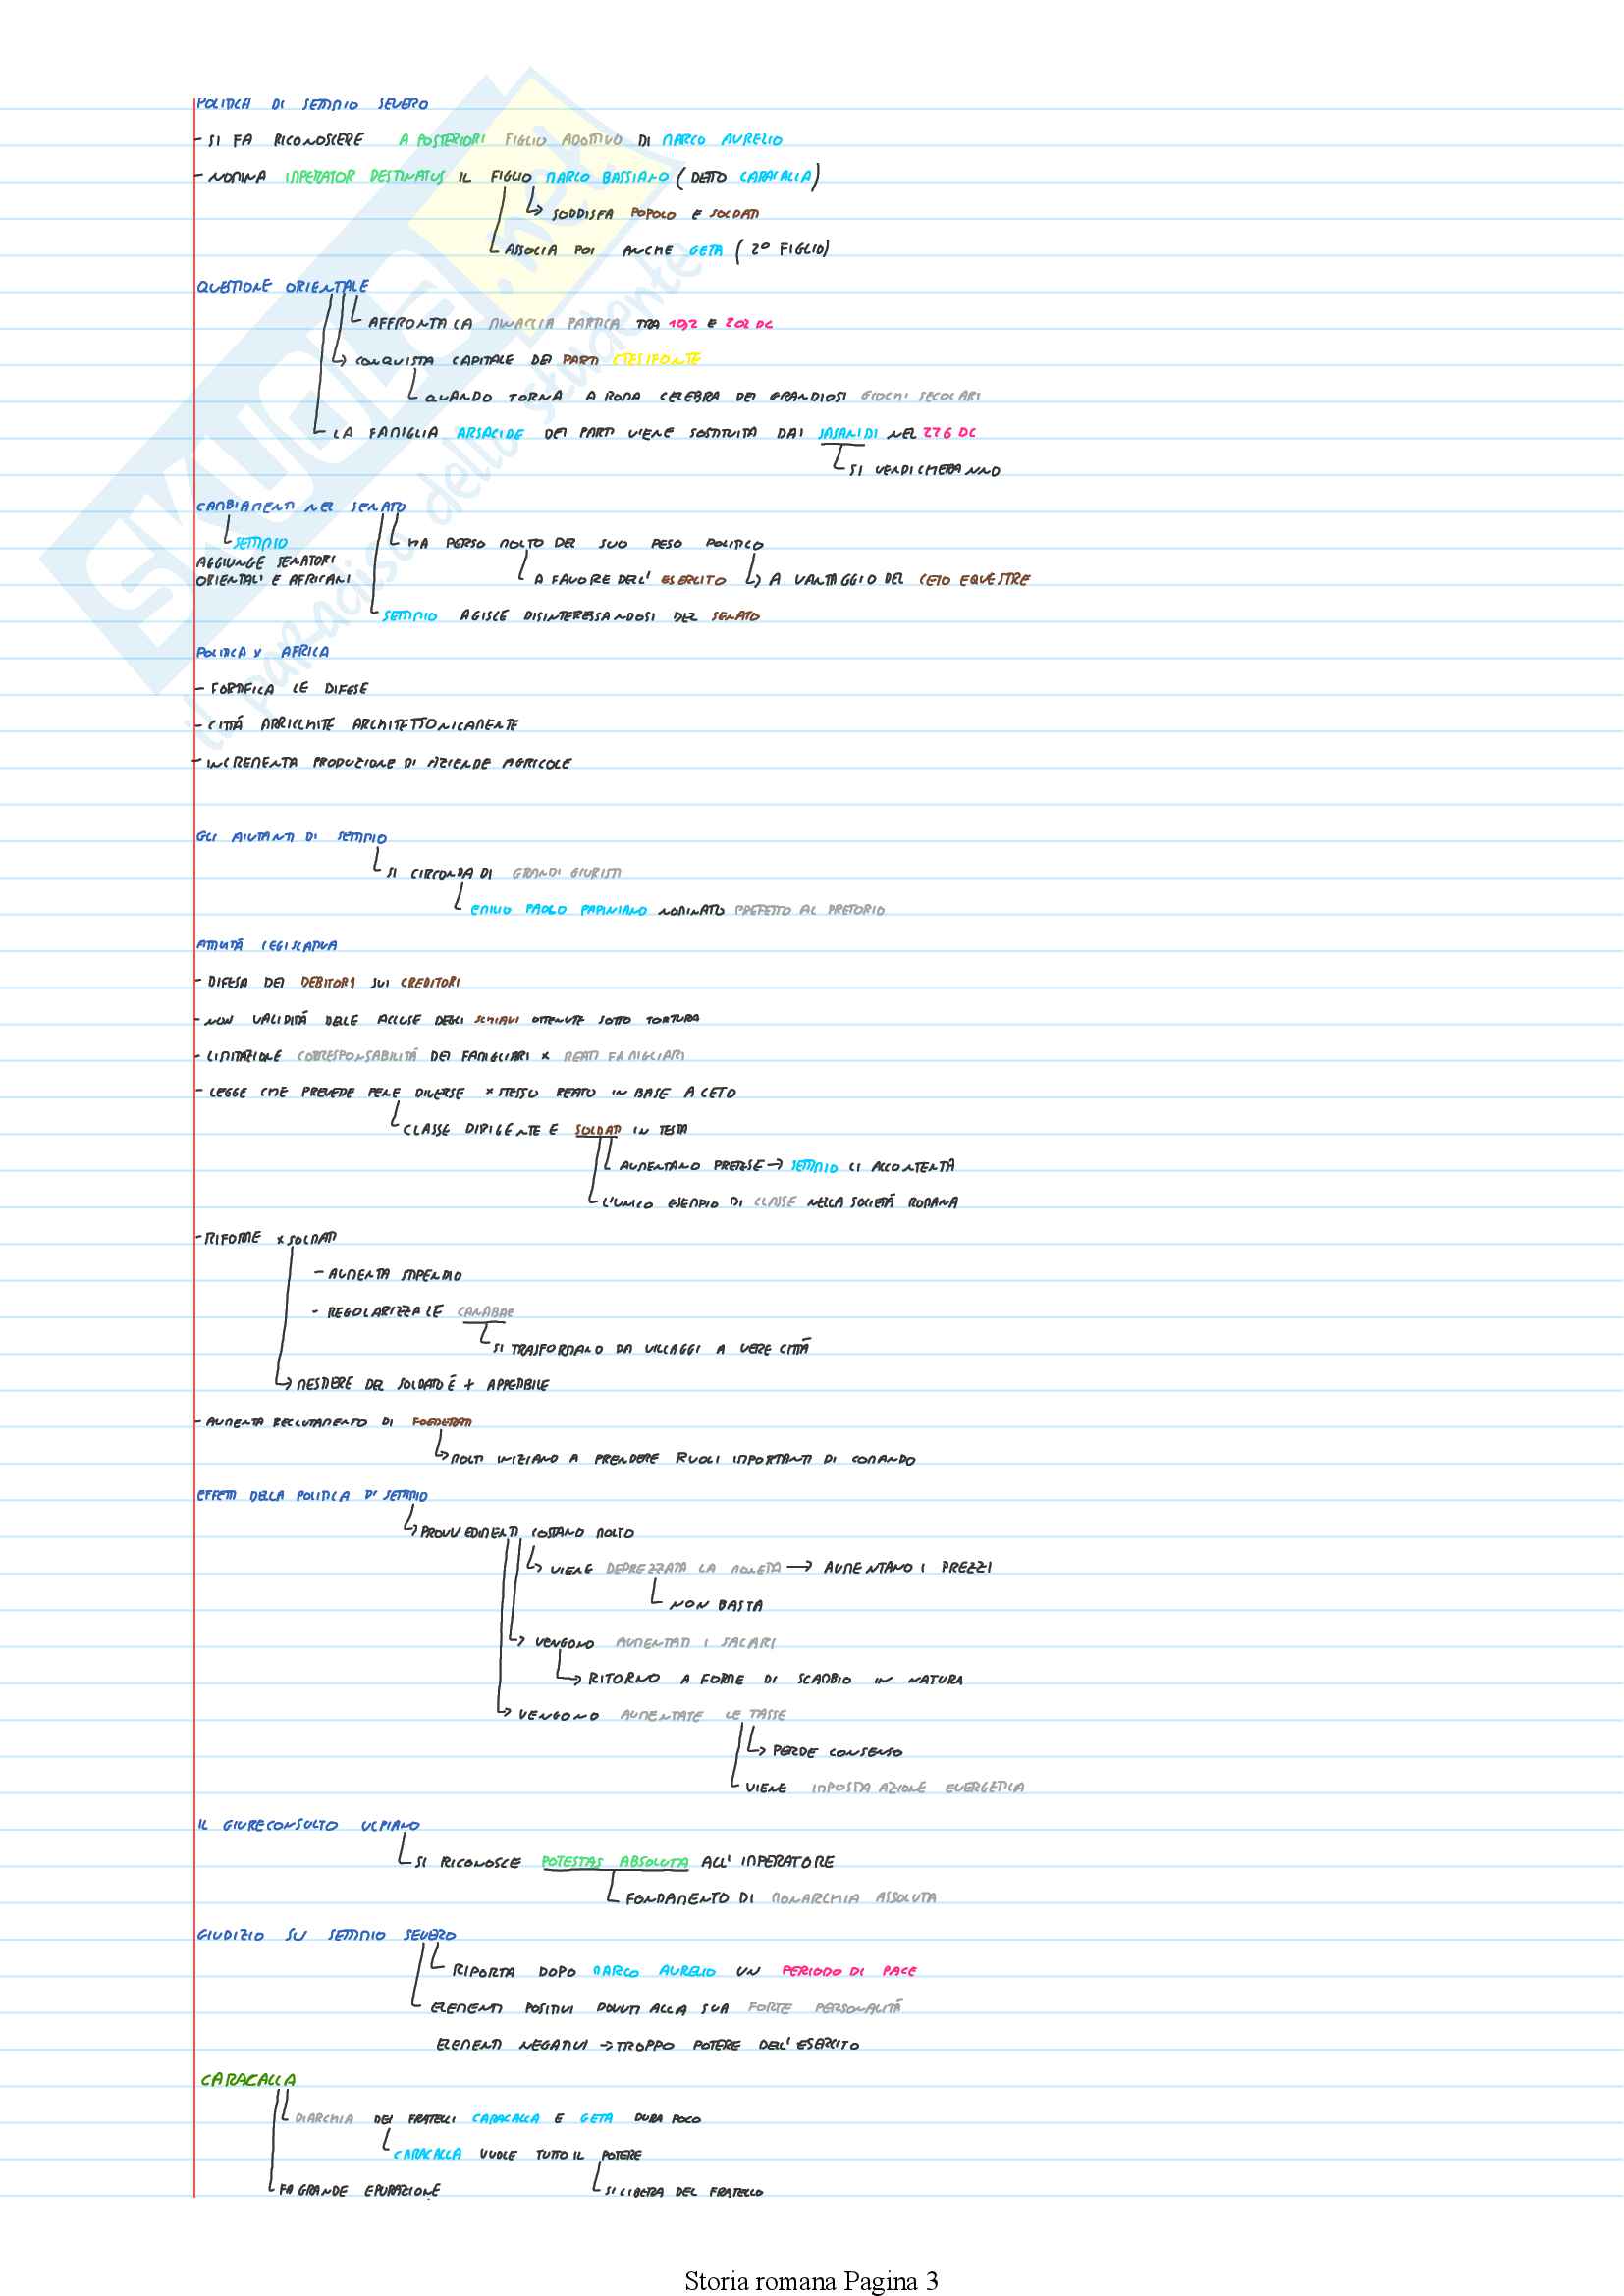 POLITICA DI SETTIMIO SEVERO
- SI FA RICONOSCERE A POSTERIORI FIGLIO ADOTTIVO DI MARCO AURELIO
- NOMINA IMPERATOR DESTINATUS IL FIGLIO MARCO BASSIANO (DETTO CARACALLA)
SODDISFA POPOLO E SOLDATI
ASSOCIA POI ANCHE GETA (2° FIGLIO)
QUESTIONE ORIENTALE
AFFRONTA LA MINACCIA PARTICA TRA 192 E 202 DC
CONQUISTA CAPITALE DEI PARTI CTESIFONTE
QUANDO TORNA A ROMA CELEBRA DEI GRANDIOSI GIOCHI SECOLARI
LA FAMIGLIA ARSACIDE DEI PARTI VIENE SOSTITUITA DAI SASANIDI NEL 226 DC
SI VENDICHERANNO
CAMBIAMENTI NEL SENATO
SETTIMIO HA PERSO MOLTO DEL SUO PESO POLITICO
AGGIUNGE SENATORI
ORIENTALI E AFRICANI A FAVORE DELL' ESERCITO → A VANTAGGIO DEL CETO EQUESTRE
SETTIMIO AGISCE DISINTERESSANDOSI DEL SENATO
POLITICA x AFRICA
- FORTIFICA LE DIFESE
- CITTÀ ARRICCHITE ARCHITETTONICAMENTE
- INCREMENTA PRODUZIONE DI AZIENDE AGRICOLE
GLI AIUTANTI DI SETTIMIO
SI CIRCONDA DI GRANDI GIURISTI
EMILIO PAOLO PAPINIANO NOMINATO PREFETTO AL PRETORIO
ATTIVITÀ LEGISLATIVA
- DIFESA DEI DEBITORI SUI CREDITORI
- NON VALIDITÀ DELLE ACCUSE DEGLI SCHIAVI OTTENUTE SOTTO TORTURA
- LIMITAZIONE CORRESPONSABILITÀ DEI FAMIGLIARI x REATI FAMIGLIARI
- LEGGE CHE PREVEDE PENE DIVERSE x STESSO REATO IN BASE A CETO
CLASSE DIRIGENTE E SOLDATI IN TESTA
AUMENTANO PRETESE → SETTIMIO LI ACCONTENTA
L'UNICO ESEMPIO DI CLASSE NELLA SOCIETÀ ROMANA
- RIFORME x SOLDATI
- AUMENTA STIPENDIO
- REGOLARIZZA LE CANABAE
SI TRASFORMANO DA VILLAGGI A VERE CITTÀ
→ MESTIERE DEL SOLDATO È + APPETIBILE
- AUMENTA RECLUTAMENTO DI FOEDERATI
→ MOLTI INIZIANO A PRENDERE RUOLI IMPORTANTI DI COMANDO
EFFETTI DELLA POLITICA DI SETTIMIO
→ PROVVEDIMENTI COSTANO MOLTO
→ VIENE DEPREZZATA LA MONETA → AUMENTANO I PREZZI
NON BASTA
→ VENGONO AUMENTATI I SALARI
→ RITORNO A FORME DI SCAMBIO IN NATURA
→ VENGONO AUMENTATE LE TASSE
→ PERDE CONSENSO
VIENE IMPOSTA AZIONE EVERGETICA
IL GIURECONSULTO ULPIANO
SI RICONOSCE POTESTAS ABSOLUTA ALL' IMPERATORE
FONDAMENTO DI MONARCHIA ASSOLUTA
GIUDIZIO SU SETTIMIO SEVERO
RIPORTA DOPO MARCO AURELIO UN PERIODO DI PACE
ELEMENTI POSITIVI DOVUTI ALLA SUA FORTE PERSONALITÀ
ELEMENTI NEGATIVI → TROPPO POTERE DELL' ESERCITO
CARACALLA
DIARCHIA DEI FRATELLI CARACALLA E GETA DURA POCO
CARACALLA VUOLE TUTTO IL POTERE
FA GRANDE EPURAZIONE SI LIBERA DEL FRATELLO
SKUOLA.net
il paradiso dello studente
Storia romana Pagina 3